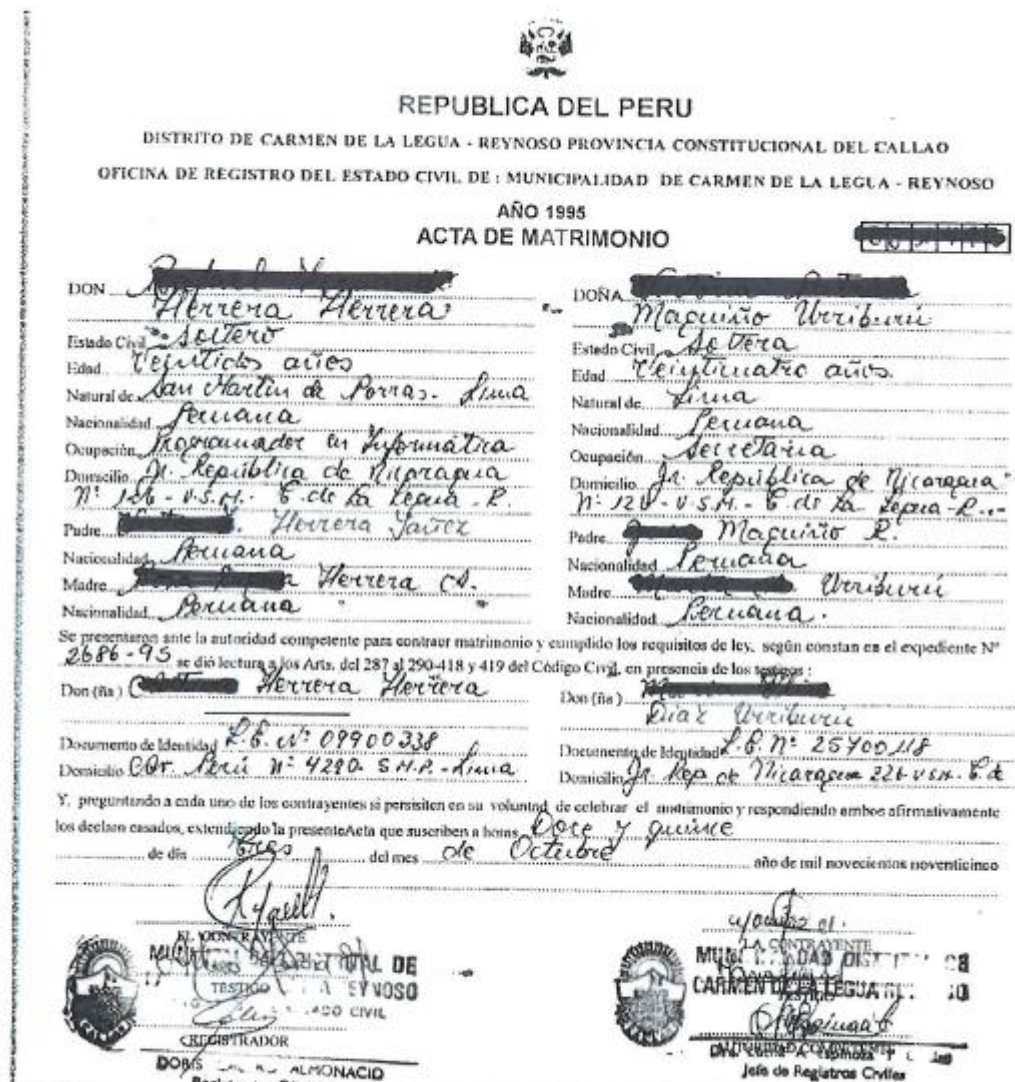 REPUBLICA DEL PERU
DISTRITO DE CARMEN DE LA LEGUA - REYNOSO PROVINCIA CONSTITUCIONAL DEL CALLAO
OFICINA DE REGISTRO DEL ESTADO CIVIL DE : MUNICIPALIDAD DE CARMEN DE LA LEGUA - REYNOSO
AÑO 1995
ACTA DE MATRIMONIO
DON
Herrera Herrera
Estado Civil Soltero
Edad Veintidos años
Natural de San Martin de Porras - Lima
Nacionalidad Peruana
Ocupación Programador en Informática
Domicilio Jr. República de Nicaragua
Nº 126 - U.S.M. - C. de La Legua - R.
Padre Herrera Yañez
Nacionalidad Peruana
Madre Herrera
Nacionalidad Peruana
DOÑA
Maguiño Urriburú
Estado Civil Soltera
Edad Veinticuatro años
Natural de Lima
Nacionalidad Peruana
Ocupación Secretaria
Domicilio Jr. República de Nicaragua
Nº 126 - U.S.M. - C. de La Legua - R.
Padre Maguiño R.
Nacionalidad Peruana
Madre Urriburú
Nacionalidad Peruana.
Se presentaron ante la autoridad competente para contraer matrimonio y cumplido los requisitos de ley, según constan en el expediente Nº
2686-95 se dió lectura a los Arts. del 287 al 290-418 y 419 del Código Civil, en presencia de los testigos :
Don (ña) Herrera Herrera
Documento de Identidad L.E. Nº 09900338
Domicilio Av. Perú Nº 4290 S.M.P. - Lima
Don (ña)
Diaz Urriburú
Documento de Identidad L.E. Nº 25700118
Domicilio Jr. Rep de Nicaragua 226 U.S.M. - C. de
Y, preguntando a cada uno de los contrayentes si persisten en su voluntad de celebrar el matrimonio y respondiendo ambos afirmativamente
los declaro casados, extendiendo la presente Acta que suscriben a horas Doce y quince
de día Tres del mes de Octubre año de mil novecientos noventicinco
EL CONTRAYENTE
TESTIGO
REGISTRADOR
DORIS ALMONACID
LA CONTRAYENTE
CARMEN DE LA LEGUA
TESTIGO
AUTORIDAD COMPETENTE
Jefe de Registros Civiles